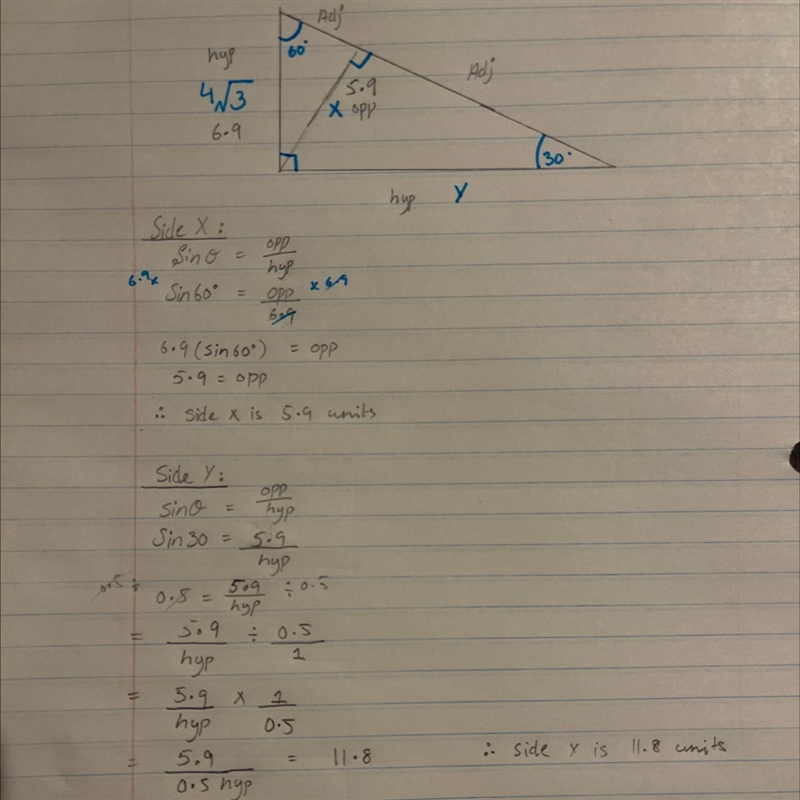 Adj
hyp
60°
Adj
4√3
5.9
x opp
6.9
30°
hyp Y
Side X:
Sinθ = opp/hyp
6.9x Sin60° = opp/6.9 x 6.9
6.9(sin60°) = opp
5.9 = opp
∴ side x is 5.9 units
Side Y:
sinθ = opp/hyp
Sin30 = 5.9/hyp
0.5 ÷ 0.5 = 5.9/hyp ÷ 0.5
= 5.9/hyp ÷ 0.5/1
= 5.9/hyp x 1/0.5
= 5.9/0.5 hyp = 11.8 ∴ side x is 11.8 units